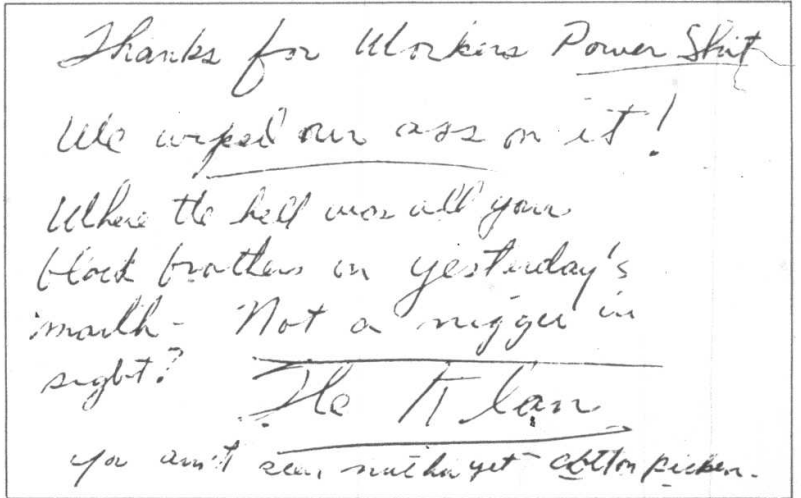 Thanks for Workers Power Shit
We wiped our ass on it!
Where the hell was all your
black brothers in yesterday's
march - Not a nigger in
sight?
The Klan
you ain't seen nutha yet cotton picken.